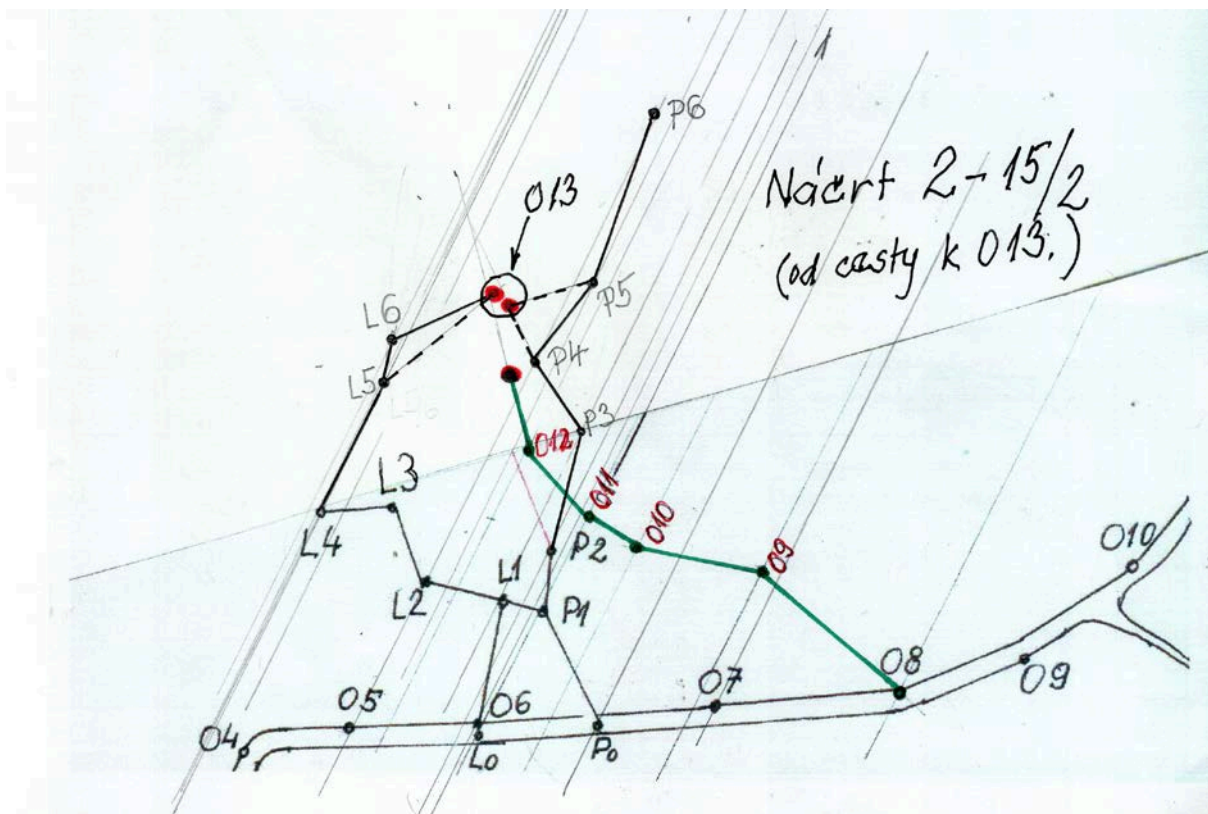 1
P6
Náčrt 2-15/2
(od cesty k O13.)
O13
P5
L6
P4
L5
L5
P3
O12
L3
O11
O10
L4
P2
O9
O10
L1
L2
P1
O8
O9
O7
O6
O5
O4
L0
P0